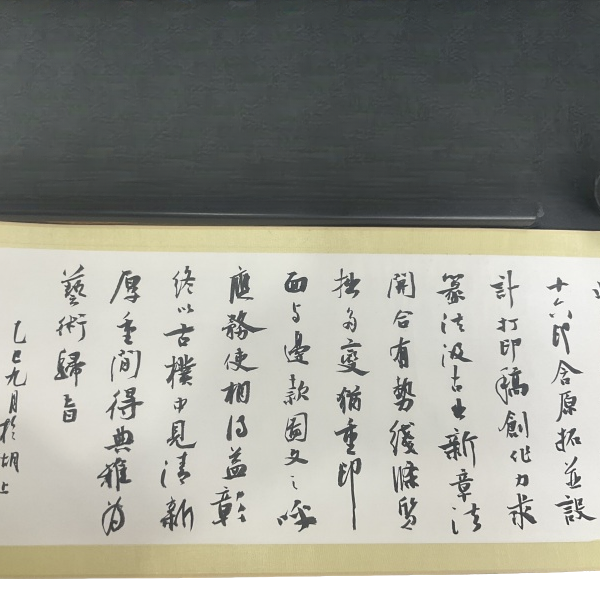 十六印含原拓並設
計打印稿創作力求
篆法汲古出新章法
開合有勢綫條質
拙多變猶重印
面与邊款圖文之呼
應務使相得益彰
終以古樸中見清新
厚重間得典雅为
藝術歸旨
乙巳九月於胡上